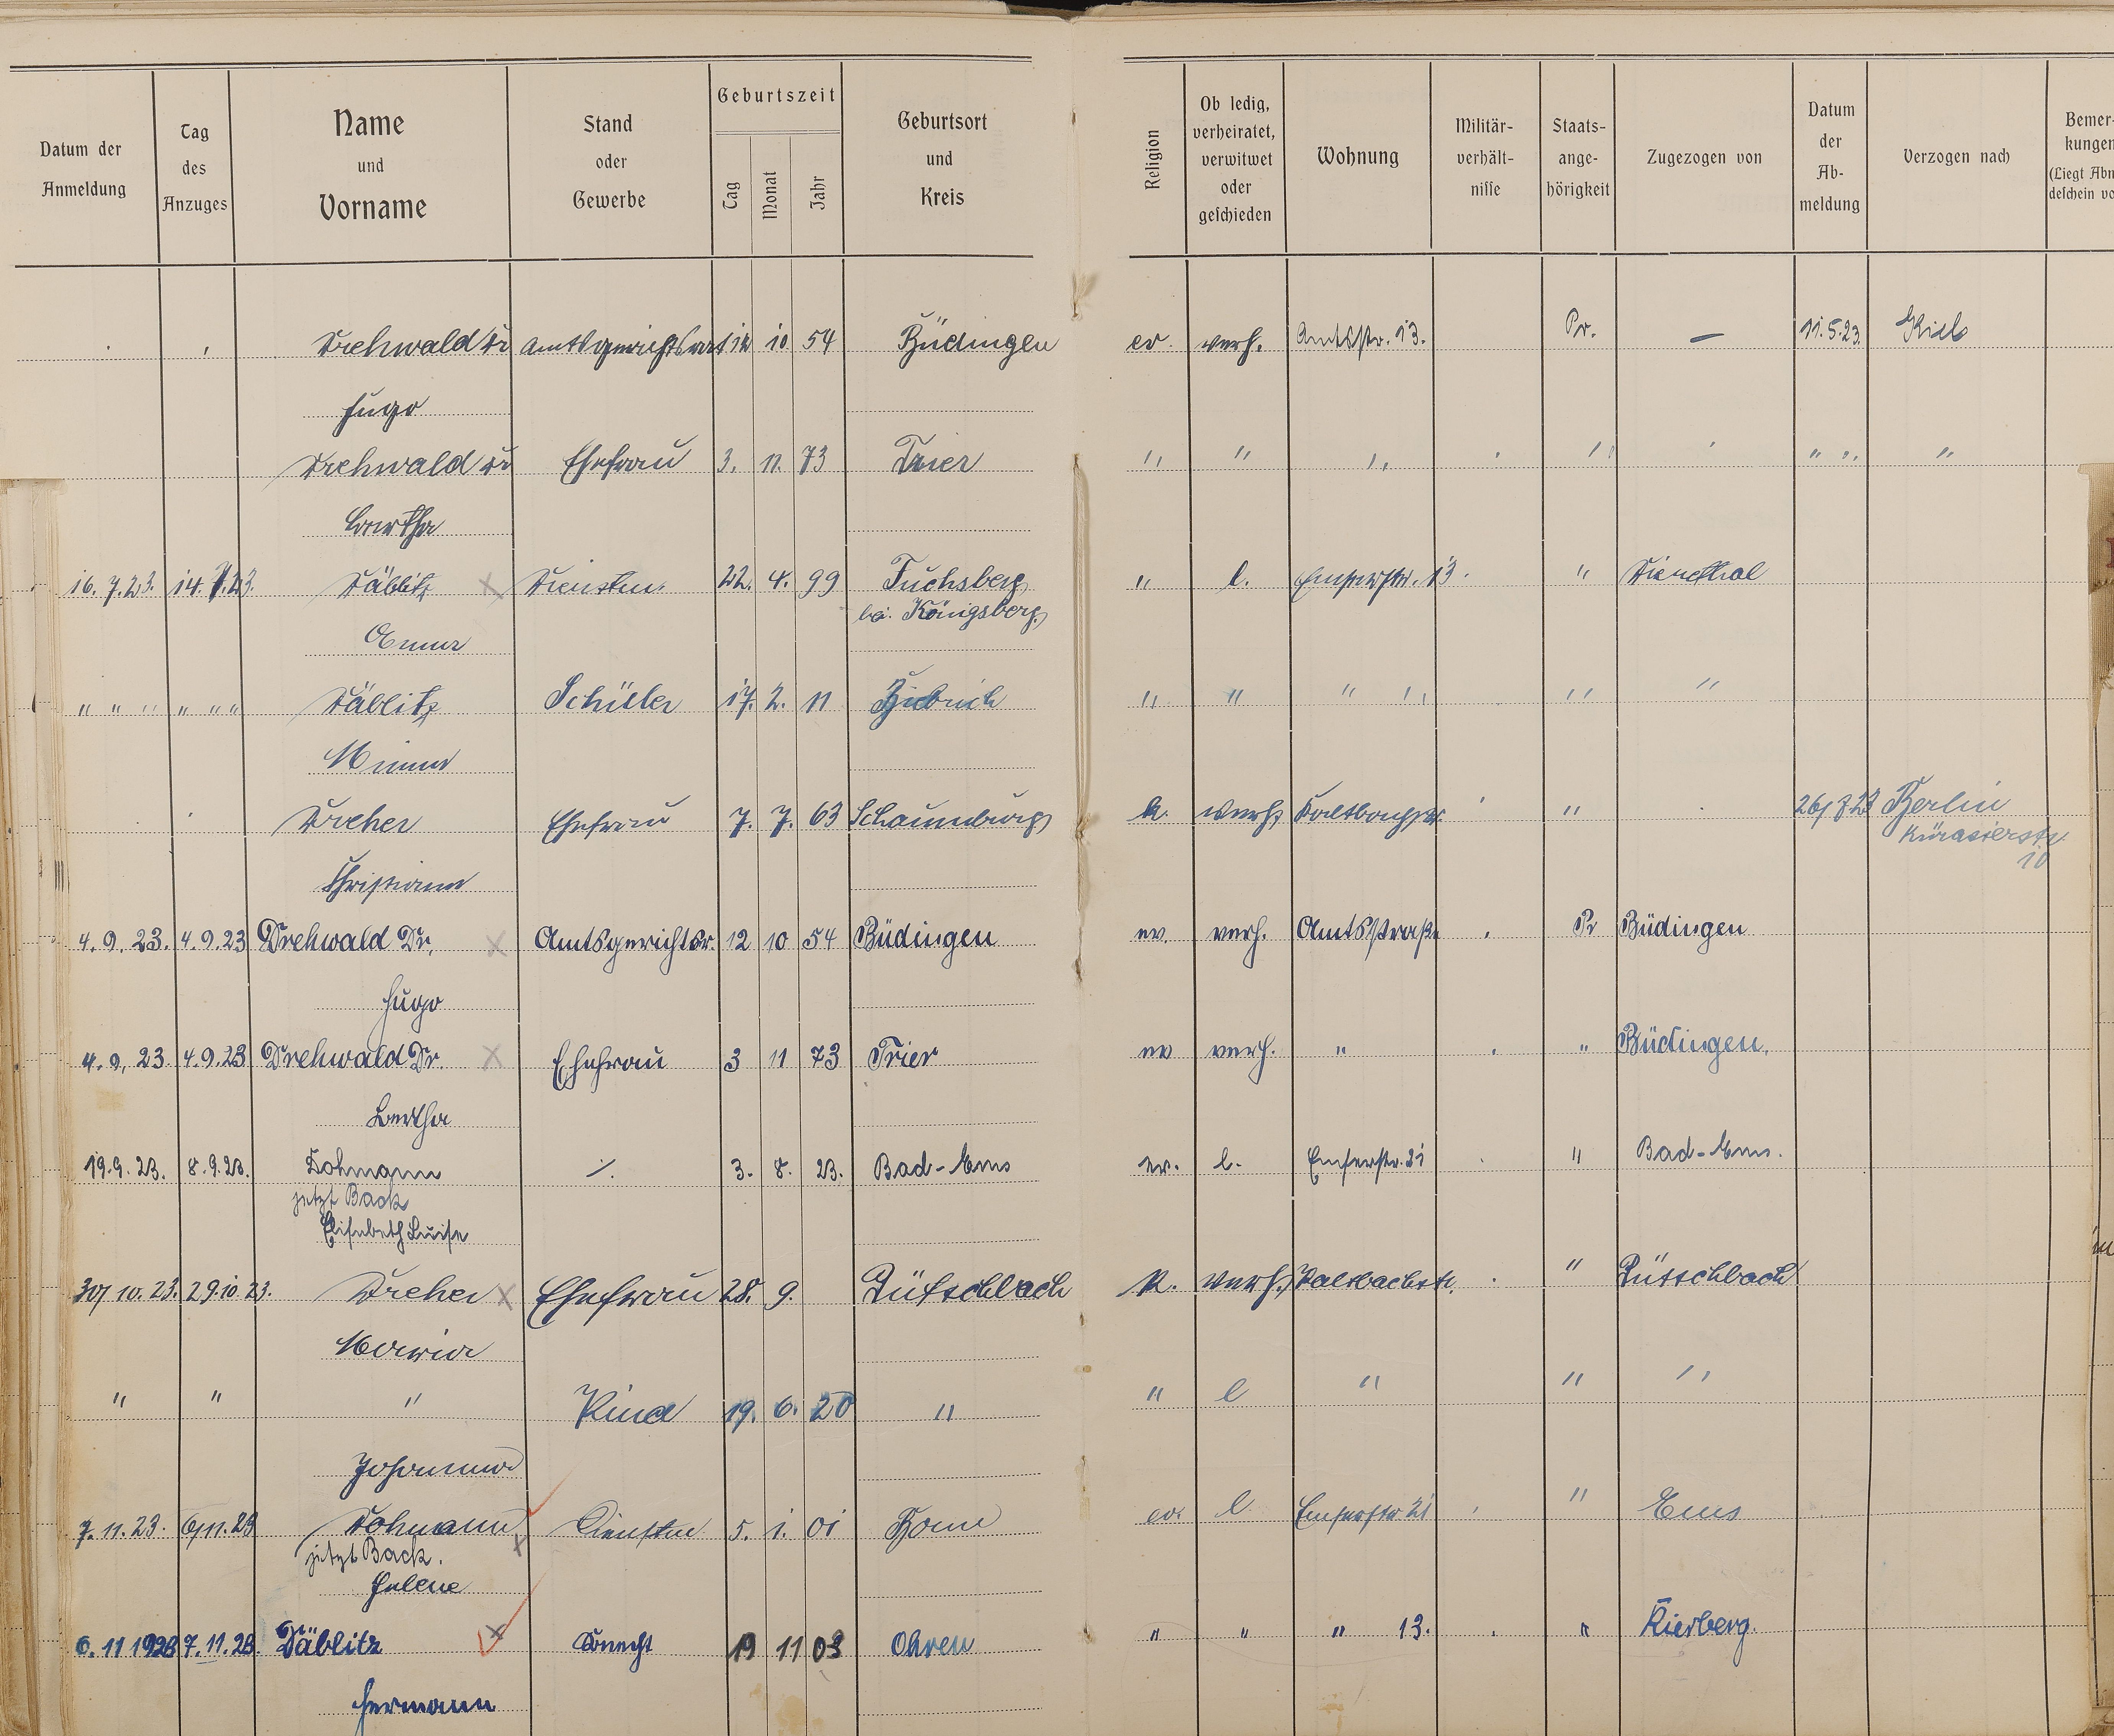 Datum der Anmeldung
Tag des Anzuges
Name und Vorname
Stand oder Gewerbe
Geburtszeit
Tag Monat Jahr
Geburtsort und Kreis
Religion
Ob ledig, verheiratet, verwitwet oder geschieden
Wohnung
Militär-verhält-nisse
Staats-ange-hörigkeit
Zugezogen von
Datum der Ab-meldung
Verzogen nach
Bemer-kungen
Drehwald Dr Amtsgerichtsrat 12 10 54 Büdingen ev. verh. Amtsstr. 13. Pr. — 11.5.23. Kiel
Hugo
Drehwald Dr Ehefrau 3. 11. 73 Trier " " " " " " "
Bertha
16.7.23. 14.7.23. Däblitz Dienstm. 22. 4. 99 Fuchsberg " l. Emserstr. 13. "
bei Königsberg
Anna
" " " " " " Däblitz Schüler 17. 2. 11 " " " " " "
Minna
Dreher Ehefrau 7. 7. 63 Schaumburg k. verh. " 26/7 23 Berlin
Kürasierstr.
10
Christiane
4.9.23. 4.9.23 Drehwald Dr. Amtsgerichtsr. 12 10 54 Büdingen ev. verh. Amtsstraße Pr Büdingen
Hugo
4.9.23. 4.9.23 Drehwald Dr. Ehefrau 3 11 73 Trier ev verh. " " Büdingen.
Bertha
19.9.23. 8.9.23. Dohmann ./. 3. 8. 23. Bad-Ems ev. l. Emserstr. 21 " Bad-Ems.
jetzt Back
Elisabeth Luise
30/10.23. 29.10.23. Dreher Ehefrau 28. 9. Pütschbach k. verh. Kaltbachstr. " Pütschbach
Maria
" " " Kind 19. 6. 20 " " l " " "
Johanna
7.11.23. 6/11.23 Dohmann Dienstm 5. 1. 01 ev. l. Emserstr 21 " Ems
jetzt Back.
Helene
6.11 1923 7.11.23. Däblitz Knecht 19 11 03 Ohren " " " 13. " Kierberg.
Hermann